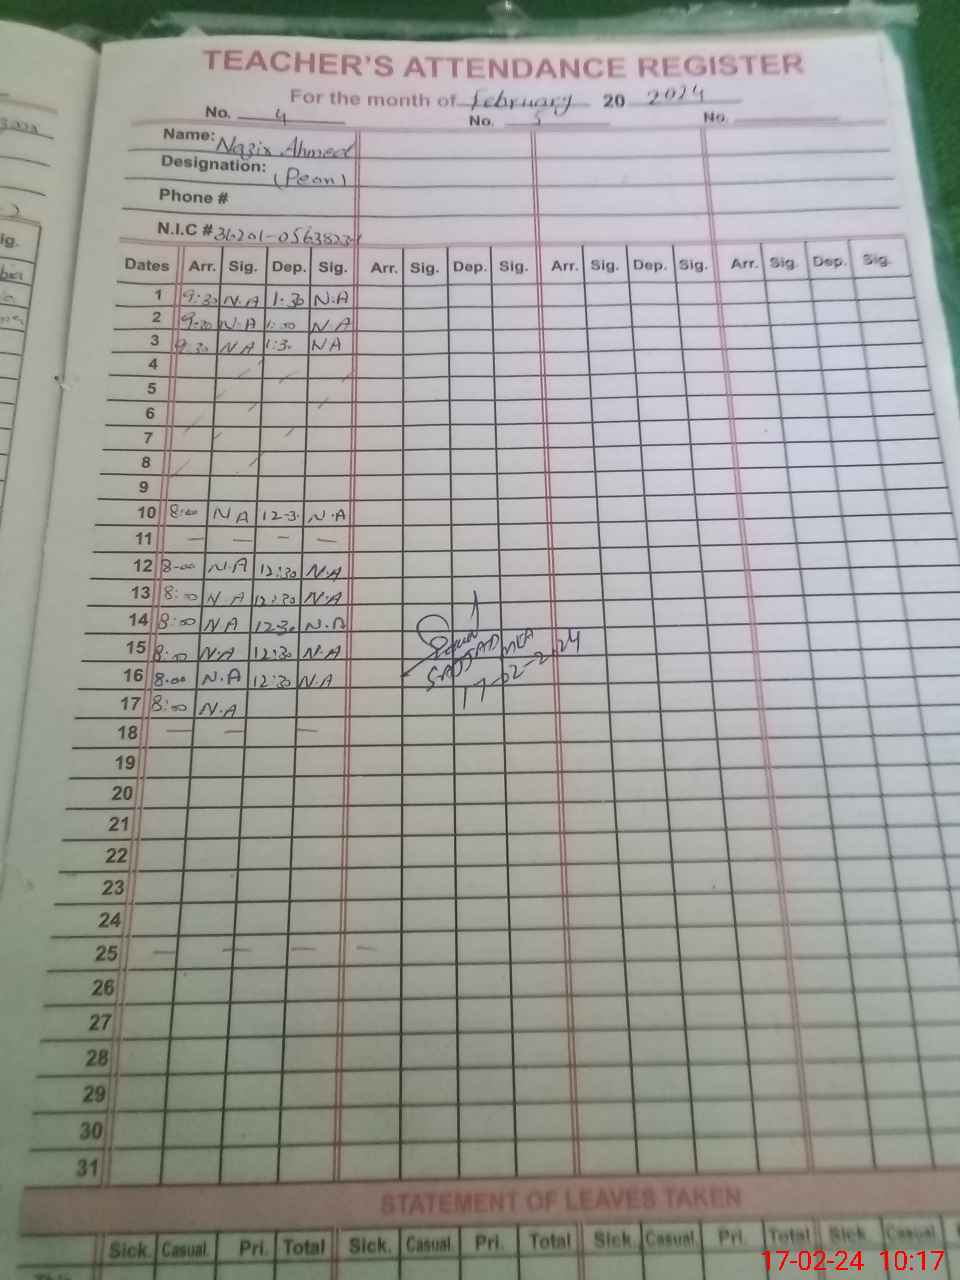 TEACHER'S ATTENDANCE REGISTER
For the month of February 20 2024
No. 4 No. 5 No.
Name: Nazir Ahmed
Designation: (Peon)
Phone #
N.I.C # 36201-0563823-1
Dates Arr. Sig. Dep. Sig. Arr. Sig. Dep. Sig. Arr. Sig. Dep. Sig. Arr. Sig. Dep. Sig.
1 9:30 N.A 1:30 N.A
2 9:30 N.A 1:30 N.A
3 9:30 NA 1:3. NA
4
5
6
7
8
9
10 8:00 NA 12-3. N.A
11 — — — —
12 8-00 N.A 12:30 N.A
13 8:00 NA 12:30 N.A
14 8:00 NA 12:30 N.A
15 8:00 NA 12:30 N.A
16 8.00 N.A 12:30 N.A
17 8:00 N.A
SAJJAD MEA
17-02-2024
18 — — —
19
20
21
22
23
24
25 — — — —
26
27
28
29
30
31
STATEMENT OF LEAVES TAKEN
Sick. Casual. Pri. Total Sick. Casual. Pri. Total Sick. Casual. Pri. Total Sick. Casual.
17-02-24 10:17